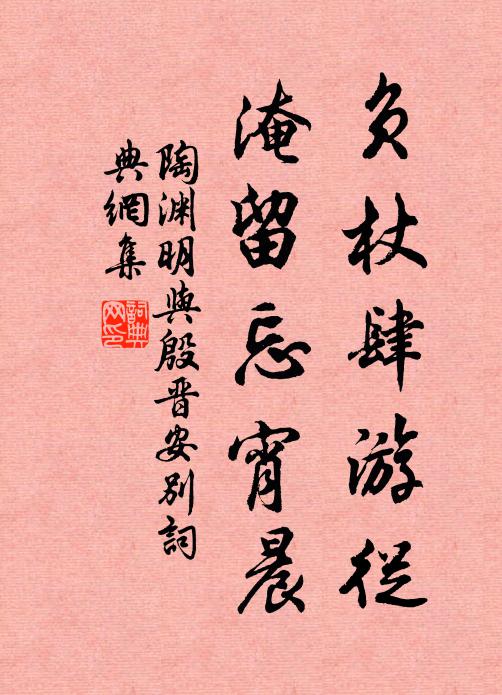 负杖肆游従
淹留忘宵晨
陶渊明與殷晋安別詞
典網集
詞典网印